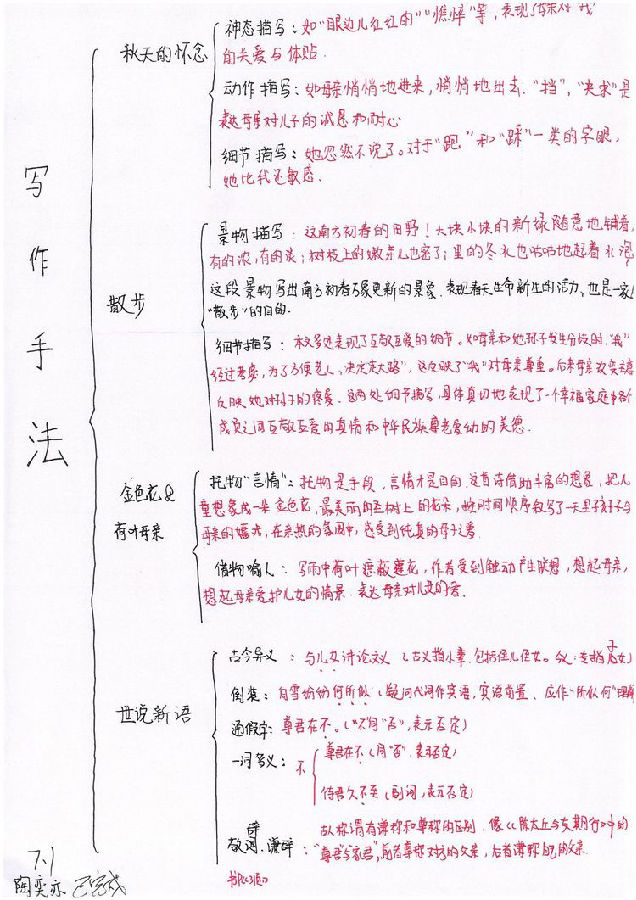 写作手法
秋天的怀念
神态描写：如"眼边儿红红的""憔悴"等，表现了母亲对"我"
的关爱与体贴.
动作描写：如母亲悄悄地进来，悄悄地出去."挡"，"央求"是
表达母亲对儿子的
和耐心
细节描写：她忽然不说了。对于"跑"和"踩"一类的字眼，
她比我还敏感.
散步
景物描写：这南方初春的田野！大块小块的新绿随意地铺着，
有的浓，有的淡；树枝上的嫩芽儿也密了；里的冬水也咕咕地起着水泡
这段景物写出南方初春万象更新的景象，表现春天生命新生的活力，也是一家人
"散步"的目的.
细节描写：本文多处表现了互敬互爱的细节，如母亲和她孙子发生分歧时，"我"
经过考虑，为了方便老人，决定走大路"，这反映了"我"对母亲尊重。后来母亲改变主意
反映她对孙子的疼爱，这两处细节描写，具体真切地表现了一个幸福家庭中各个
成员之间互敬互爱的真情和中华民族尊老爱幼的美德.
金色花&
荷叶母亲
托物"言情"：托物是手段，言情才是目的，这首诗借助丰富的想象，把儿
童想象成一朵金色花，最美丽的圣树上的花朵，按时间顺序叙写了一天里孩子与
母亲的嬉戏，在亲热的氛围中，感受到纯真的母子之爱.
借物喻人：写雨中荷叶遮蔽莲花，作者受到触动产生联想，想起母亲，
想起母亲爱护儿女的情景.表达母亲对儿女的爱.
世说新语
古今异义：与儿女讲论文义（古义指小辈，包括侄儿侄女。今义：专指子女）
倒装：白雪纷纷何所似（疑问代词作宾语，宾语前置，应作"所似何"理解
通假字：尊君在不.（"不"同"否"，表示否定）
一词多义：不
尊君在不（同"否"，表否定）
待君久不至（副词，表示否定）
敬词、谦辞
古人称谓有谦称和尊称的区别，像《陈太丘与友期行》中的
："尊君与家君"，前者尊称对方的父亲，后者谦称自己的父亲.
7.1
陶奕亦 已完成